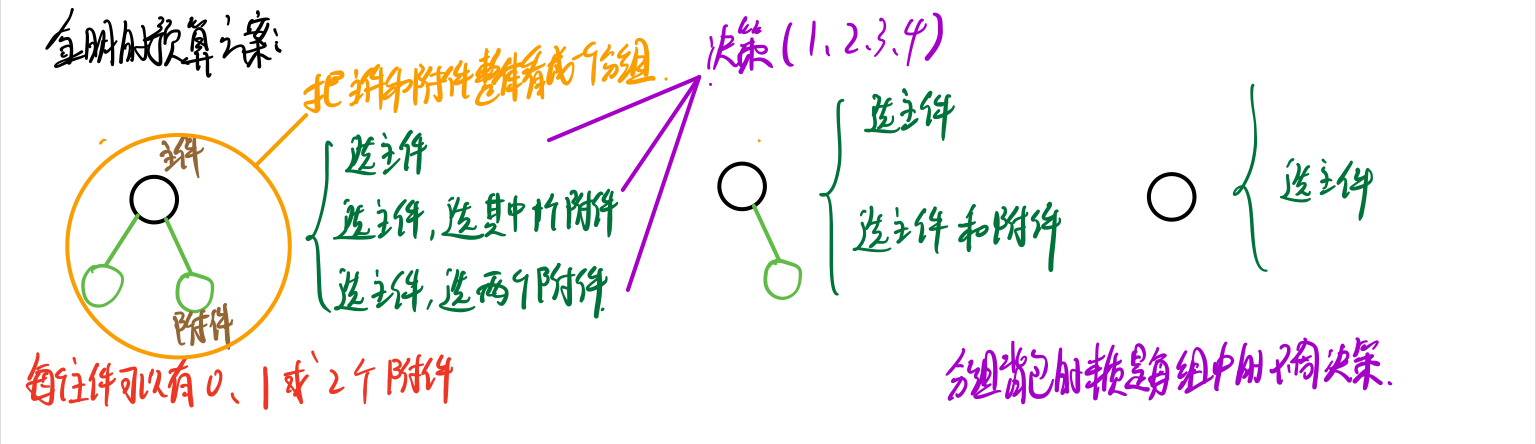 金明的预算方案:
把主件和附件整体看成一个分组.
决策(1、2、3、4)
主件
附件
选主件
选主件,选其中1个附件
选主件,选两个附件.
选主件
选主件和附件
选主件
每个主件可以有0、1或2个附件
分组背包的本质是每组中的不同决策.